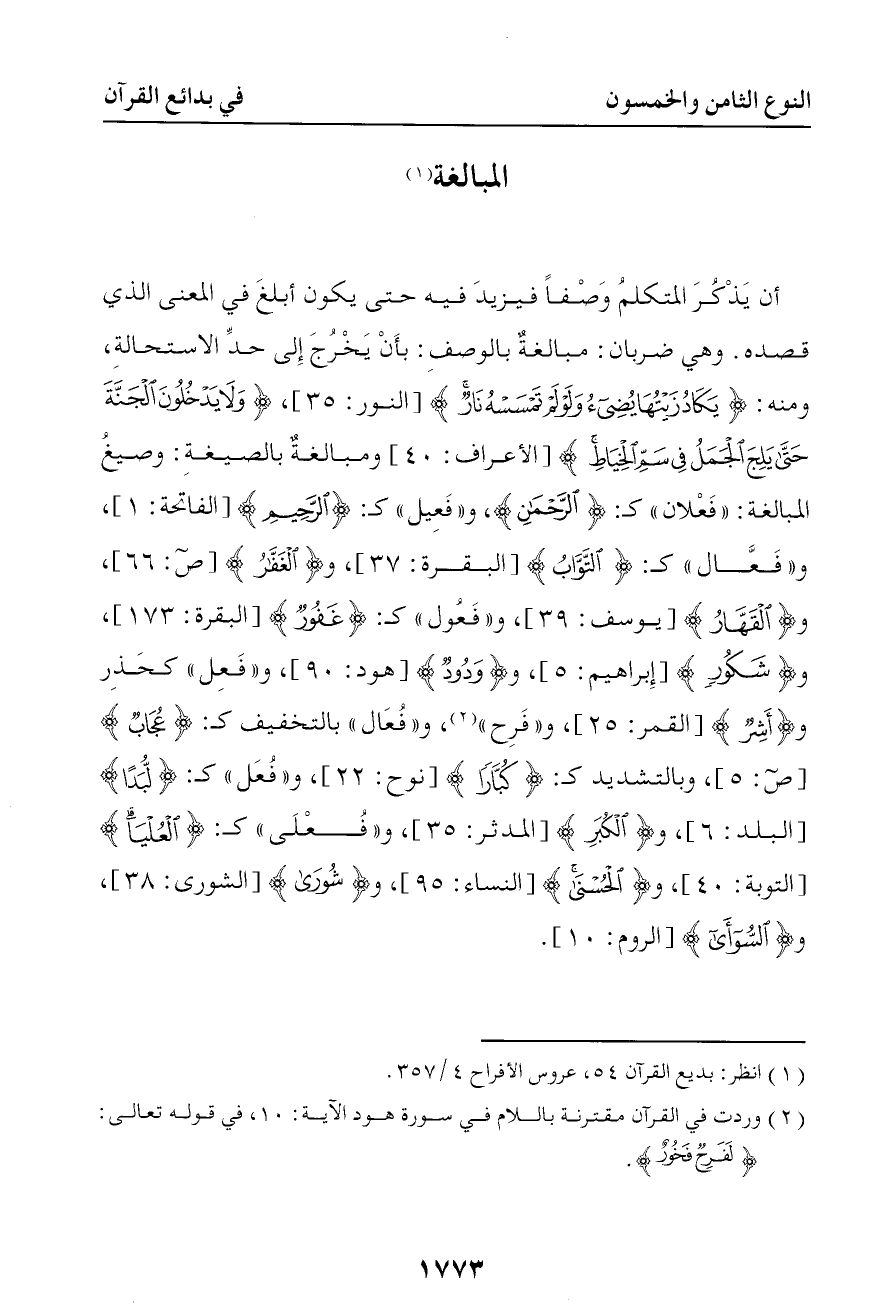 النوع الثامن والخمسون في بدائع القرآن
المبالغة(١)
أن يَذْكُرَ المتكلمُ وَصْفاً فيزيدَ فيه حتى يكون أبلغَ في المعنى الذي
قصده. وهي ضربان: مبالغةٌ بالوصف: بأنْ يَخْرُجَ إلى حدِّ الاستحالة،
ومنه: ﴿ يَكَادُ زَيْتُهَا يُضِىٓءُ وَلَوْ لَمْ تَمْسَسْهُ نَارٌۚ ﴾ [النور: ٣٥]، ﴿ وَلَا يَدْخُلُونَ ٱلْجَنَّةَ
حَتَّىٰ يَلِجَ ٱلْجَمَلُ فِى سَمِّ ٱلْخِيَاطِۚ ﴾ [الأعراف: ٤٠] ومبالغةٌ بالصيغة: وصيغُ
المبالغة: «فَعْلان» كـ: ﴿ ٱلرَّحْمَٰنِ ﴾، و«فَعيل» كـ: ﴿ٱلرَّحِيمِ﴾ [الفاتحة: ١]،
و«فَعَّال» كـ: ﴿ ٱلتَّوَّابُ ﴾ [البقرة: ٣٧]، و﴿ ٱلْغَفَّٰرُ ﴾ [صٓ: ٦٦]،
و﴿ ٱلْقَهَّارُ ﴾ [يوسف: ٣٩]، و«فَعُول» كـ: ﴿غَفُورٌ ﴾ [البقرة: ١٧٣]،
و﴿ شَكُورٍ ﴾ [إبراهيم: ٥]، و﴿وَدُودٌ﴾ [هود: ٩٠]، و«فَعِل» كحَذِر
و﴿أَشِرٌ ﴾ [القمر: ٢٥]، و«فَرِح»(٢)، و«فُعَال» بالتخفيف كـ: ﴿ عُجَابٌ ﴾
[صٓ: ٥]، وبالتشديد كـ: ﴿ كُبَّارًا ﴾ [نوح: ٢٢]، و«فُعَل» كـ: ﴿ لُّبَدًا﴾
[البلد: ٦]، و﴿ ٱلْكُبَرِ ﴾ [المدثر: ٣٥]، و«فُعْلَى» كـ: ﴿ ٱلْعُلْيَاۗ ﴾
[التوبة: ٤٠]، و﴿ ٱلْحُسْنَىٰۚ ﴾ [النساء: ٩٥]، و﴿ شُورَىٰ ﴾ [الشورى: ٣٨]،
و﴿ ٱلسُّوٓأَىٰٓ ﴾ [الروم: ١٠].
(١) انظر: بديع القرآن ٥٤، عروس الأفراح ٤/ ٣٥٧.
(٢) وردت في القرآن مقترنة باللام في سورة هود الآية: ١٠، في قوله تعالى:
﴿ لَفَرِحٌ فَخُورٌ ﴾.
١٧٧٣